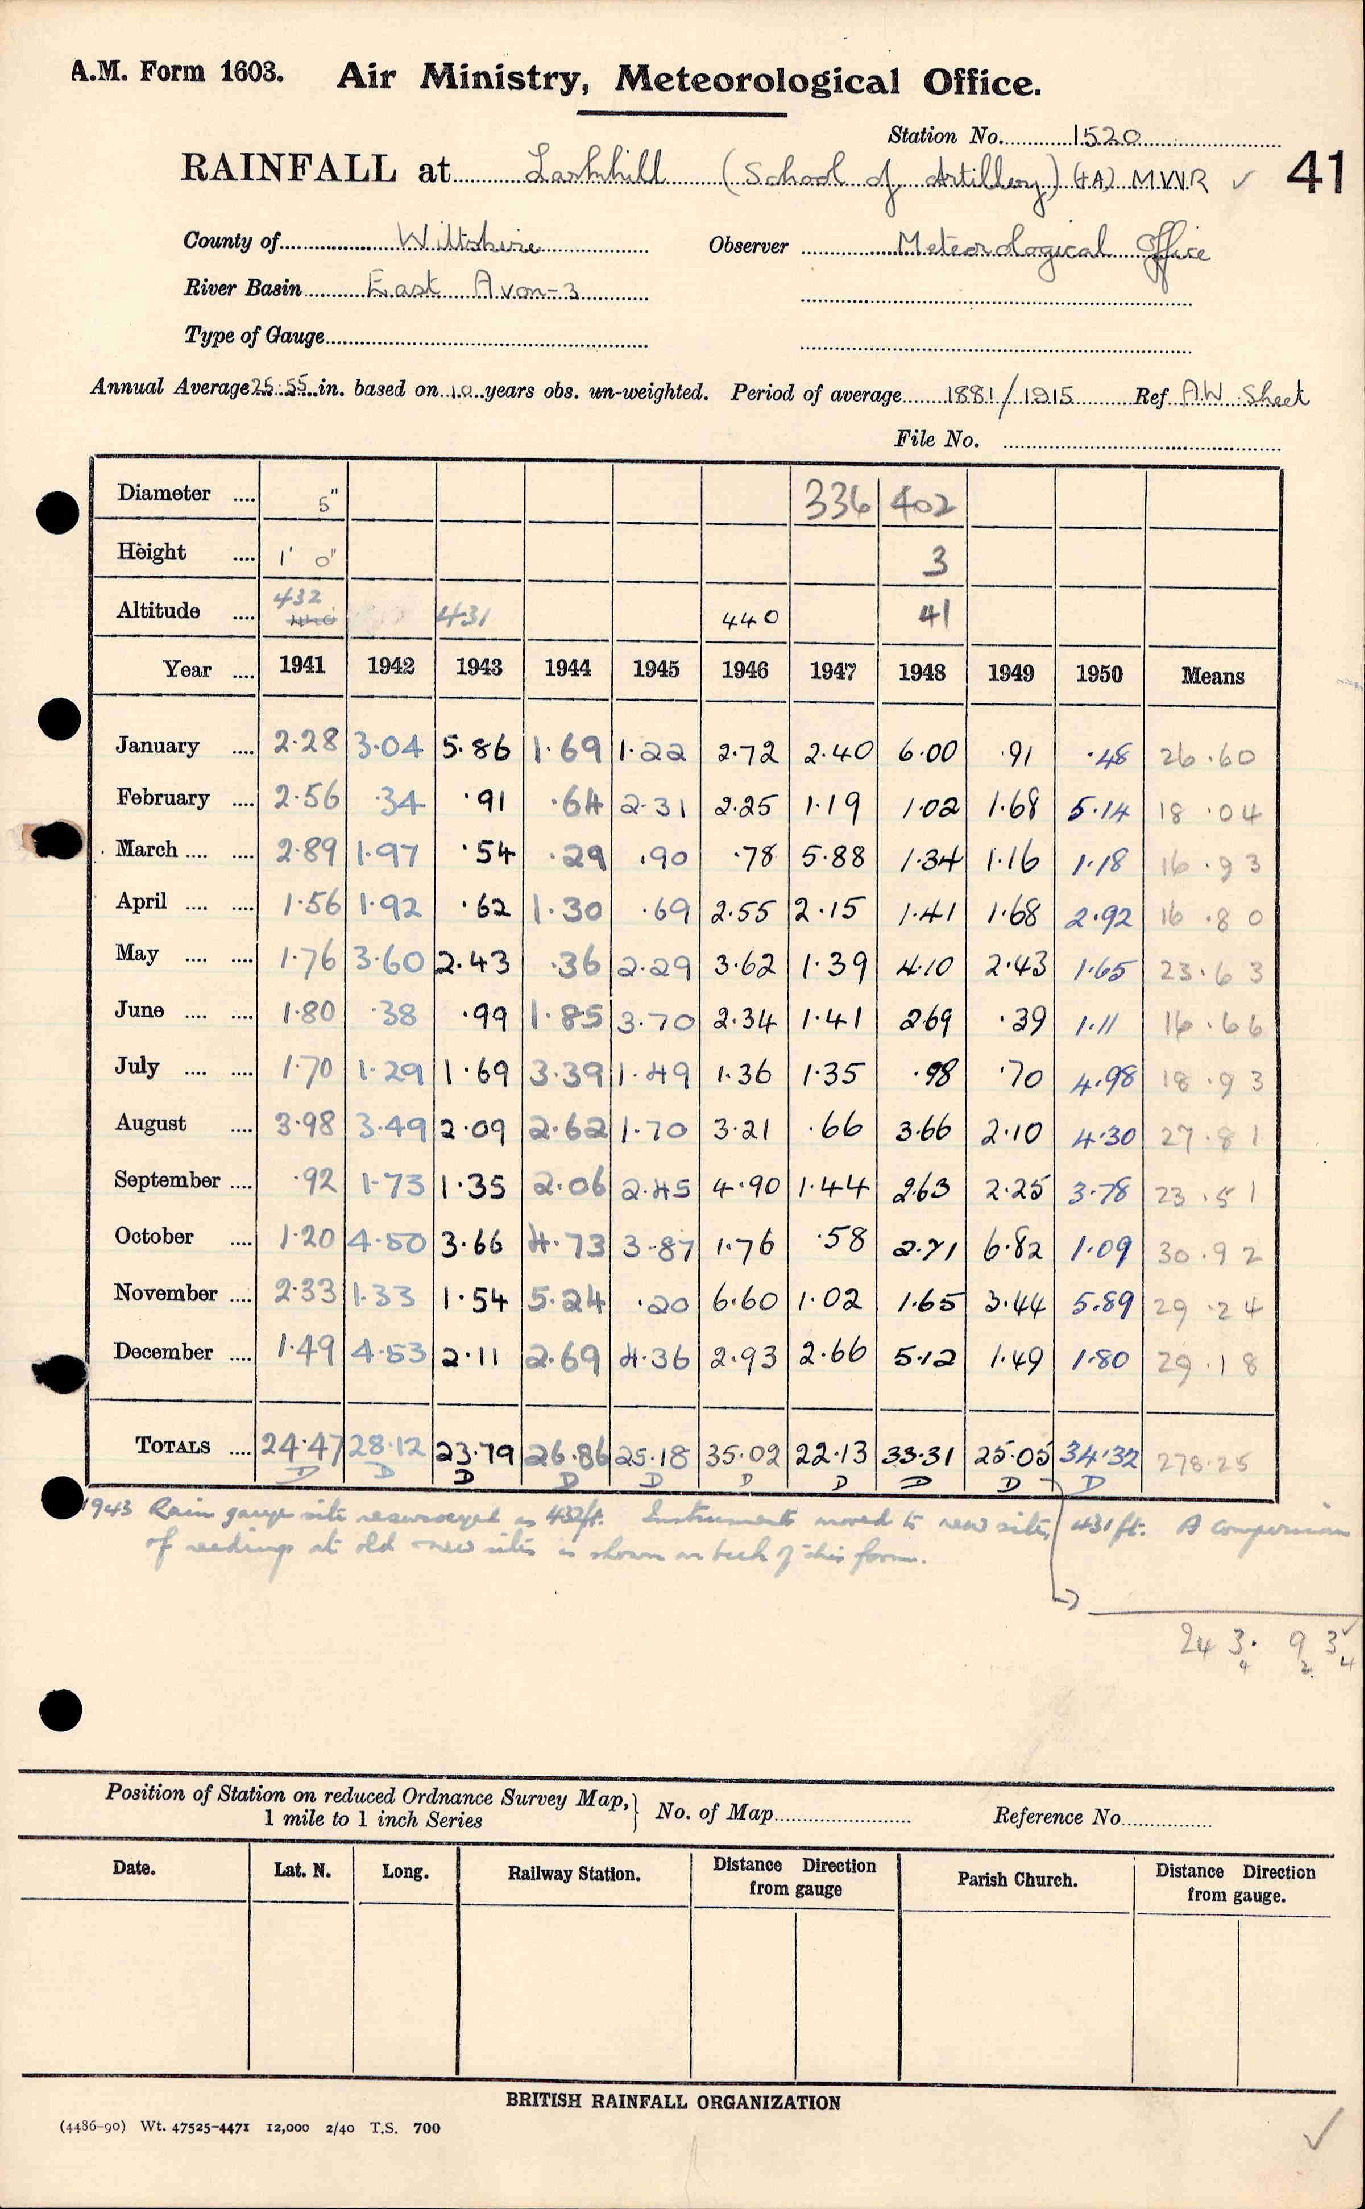 A.M. Form 1603. Air Ministry, Meteorological Office.
Station No. 1520
RAINFALL at Larkhill (School of Artillery) (HA) MWR ✓ 41
County of Wiltshire Observer Meteorological Office
River Basin East Avon-3
Type of Gauge
Annual Average 25.55 in. based on 10 years obs. un-weighted. Period of average 1881/1915 Ref AW Sheet
File No.
Diameter 5" 336 402
Height 1' 0" 3
Altitude 432 431 440 41
Year 1941 1942 1943 1944 1945 1946 1947 1948 1949 1950 Means
January 2.28 3.04 5.86 1.69 1.22 2.72 2.40 6.00 .91 .48 26.60
February 2.56 .34 .91 .64 2.31 2.25 1.19 1.02 1.68 5.14 18.04
March 2.89 1.97 .54 .29 .90 .78 5.88 1.34 1.16 1.18 16.93
April 1.56 1.92 .62 1.30 .69 2.55 2.15 1.41 1.68 2.92 16.80
May 1.76 3.60 2.43 .36 2.29 3.62 1.39 4.10 2.43 1.65 23.63
June 1.80 .38 .99 1.85 3.70 2.34 1.41 2.69 .39 1.11 16.66
July 1.70 1.29 1.69 3.39 1.49 1.36 1.35 .98 .70 4.98 18.93
August 3.98 3.49 2.09 2.62 1.70 3.21 .66 3.66 2.10 4.30 27.81
September .92 1.73 1.35 2.06 2.45 4.90 1.44 2.63 2.25 3.78 23.51
October 1.20 4.50 3.66 4.73 3.87 1.76 .58 2.71 6.82 1.09 30.92
November 2.33 1.33 1.54 5.24 .20 6.60 1.02 1.65 3.44 5.89 29.24
December 1.49 4.53 2.11 2.69 4.36 2.93 2.66 5.12 1.49 1.80 29.18
TOTALS 24.47 28.12 23.79 26.86 25.18 35.02 22.13 33.31 25.05 34.32 278.25
D D D D D D D D D D
1943 Rain gauge site resurveyed as 432ft. Instruments moved to new site, 431ft. A comparison
of readings at old & new sites is shown on back of this form.
243.93 ✓
4 2 4
Position of Station on reduced Ordnance Survey Map,
1 mile to 1 inch Series } No. of Map Reference No.
Date. Lat. N. Long. Railway Station. Distance Direction from gauge Parish Church. Distance Direction from gauge.
BRITISH RAINFALL ORGANIZATION
(4486-90) Wt. 47525-4471 12,000 2/40 T.S. 700
✓